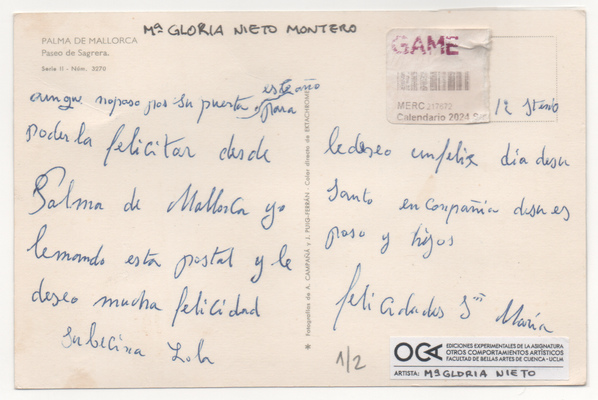 Mª GLORIA NIETO MONTERO
PALMA DE MALLORCA
Paseo de Sagrera.
Serie II - Núm. 3270
este año
aunque no paso por su puerta para
poderla felicitar desde
Palma de Mallorca yo
le mando esta postal y le
deseo mucha felicidad
su becina Lola
* Fotografías de A. CAMPAÑÁ y J. PUIG-FERRÁN - Color directo de EKTACHROME
GAME
MERC 217672
Calendario 2024
12
le deseo un feliz día de su
Santo en compañía de su es
poso y hijos
felicidades Sra María
1/2
OCA
EDICIONES EXPERIMENTALES DE LA ASIGNATURA
OTROS COMPORTAMIENTOS ARTÍSTICOS
FACULTAD DE BELLAS ARTES DE CUENCA · UCLM
ARTISTA: Mª GLORIA NIETO